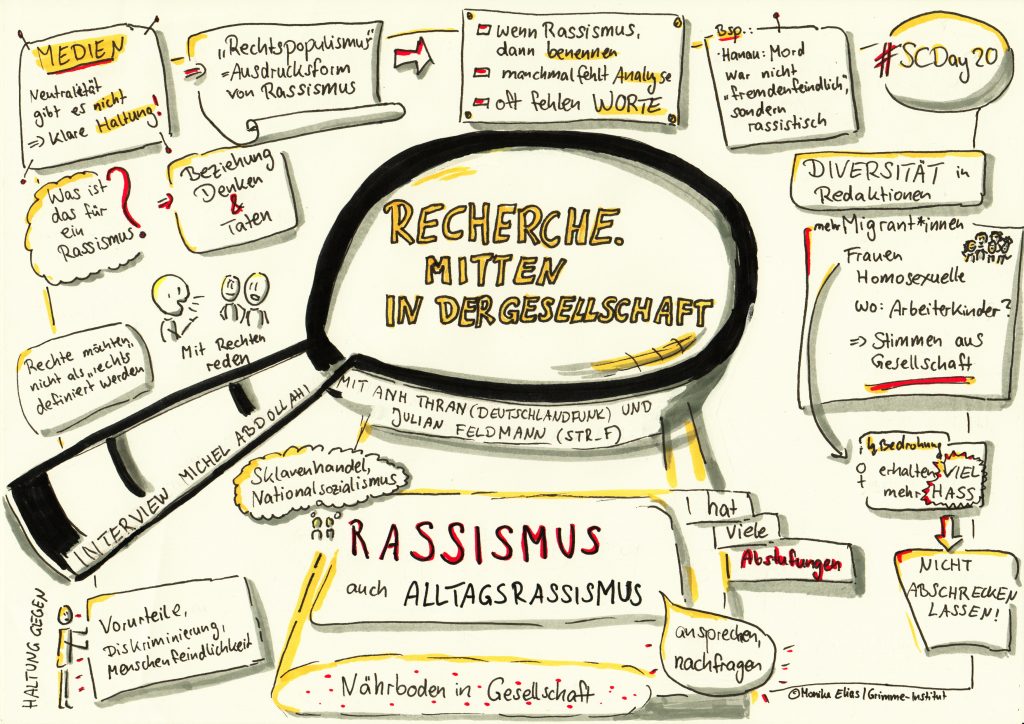 MEDIEN
Neutralität
gibt es nicht
⇒ Klare Haltung!
⇒ „Rechtspopulismus"
= Ausdrucksform
von Rassismus
wenn Rassismus,
dann benennen
manchmal fehlt Analyse
oft fehlen WORTE
Bsp.:
Hanau: Mord
war nicht
„fremdenfeindlich",
sondern
rassistisch
#SCDay20
Was ist
das für
ein
Rassismus?
⇒ Beziehung
Denken
&
Taten
RECHERCHE.
MITTEN
IN DER GESELLSCHAFT
MIT ANH THRAN (DEUTSCHLANDFUNK) UND
JULIAN FELDMANN (STR_F)
INTERVIEW MICHEL ABDOLLAHI
DIVERSITÄT in
Redaktionen
mehr Migrant*innen
Frauen
Homosexuelle
Wo: Arbeiterkinder?
⇒ Stimmen aus
Gesellschaft
Mit Rechten
reden
Rechte möchten
nicht als „rechts
definiert werden
Sklavenhandel,
Nationalsozialismus
RASSISMUS
auch ALLTAGSRASSISMUS
hat
Viele
Abstufungen
ansprechen,
nachfragen
Nährboden in Gesellschaft
Bedrohung
erhalten VIEL
mehr HASS
NICHT
ABSCHRECKEN
LASSEN!
HALTUNG GEGEN
Vorurteile,
Diskriminierung,
Menschenfeindlichkeit
©Monika Elias/Grimme-Institut